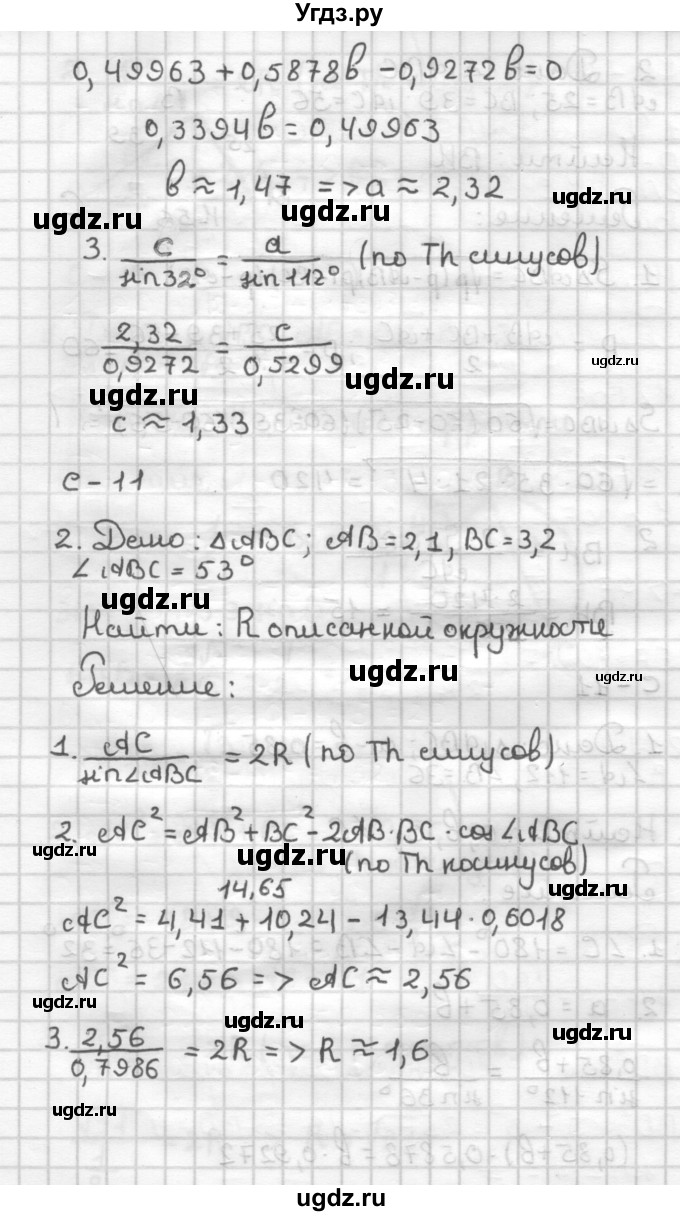 Угдз.ру
0,49963+0,5878в-0,9272в=0
0,3394в=0,49963
в≈1,47 => a≈2,32
ugdz.ru
ugdz.ru
ugdz.ru
3. c/sin32° = a/sin112° (по Th синусов)
2,32/0,9272 = c/0,5299
ugdz.ru
ugdz.ru
ugdz.ru
c≈1,33
с-11
2. Дано: △ABC; AB=2,1, BC=3,2
∠ABC=53°
ugdz.ru
Найти: R описанной окружности
ugdz.ru
ugdz.ru
Решение:
1. AC/sin∠ABC = 2R (по Th синусов)
2. AC²=AB²+BC²-2AB·BC·cos∠ABC
ugdz.ru
ugdz.ru
(по Th косинусов)
ugdz.ru
14,65
AC²=4,41+10,24-13,44·0,6018
AC²=6,56=>AC≈2,56
ugdz.ru
ugdz.ru
ugdz.ru
3. 2,56/0,7986 = 2R => R≈1,6
ugdz.ru
ugdz.ru